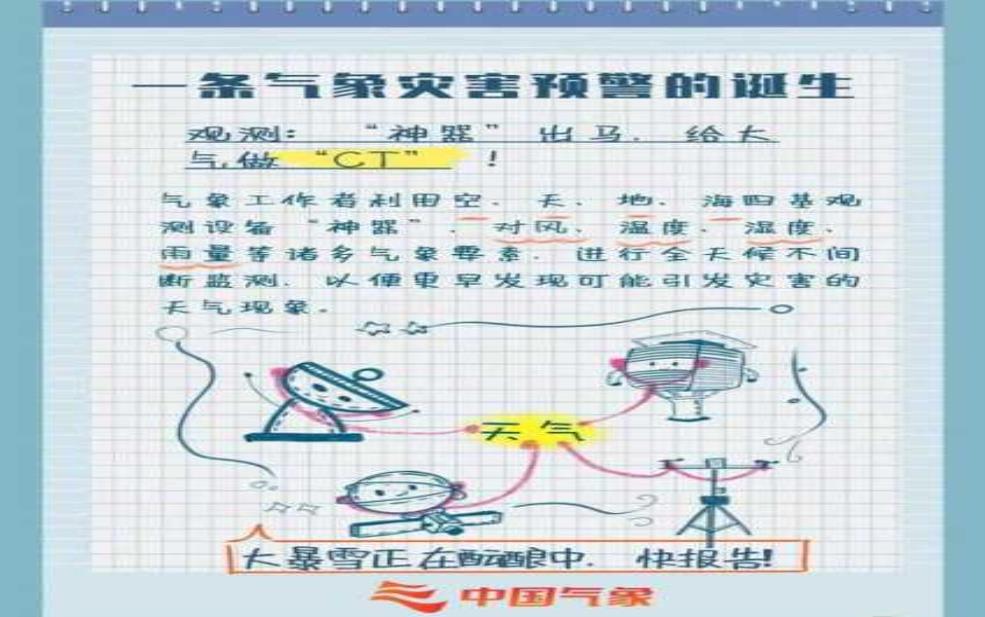 一条气象灾害预警的诞生
观测：“神器”出马，给大
气做“CT”！
气象工作者利用空、天、地、海四基观
测设备“神器”，对风、温度、湿度、
雨量等诸多气象要素，进行全天候不间
断监测，以便更早发现可能引发灾害的
天气现象。
天气
大暴雪正在酝酿中，快报告！
中国气象